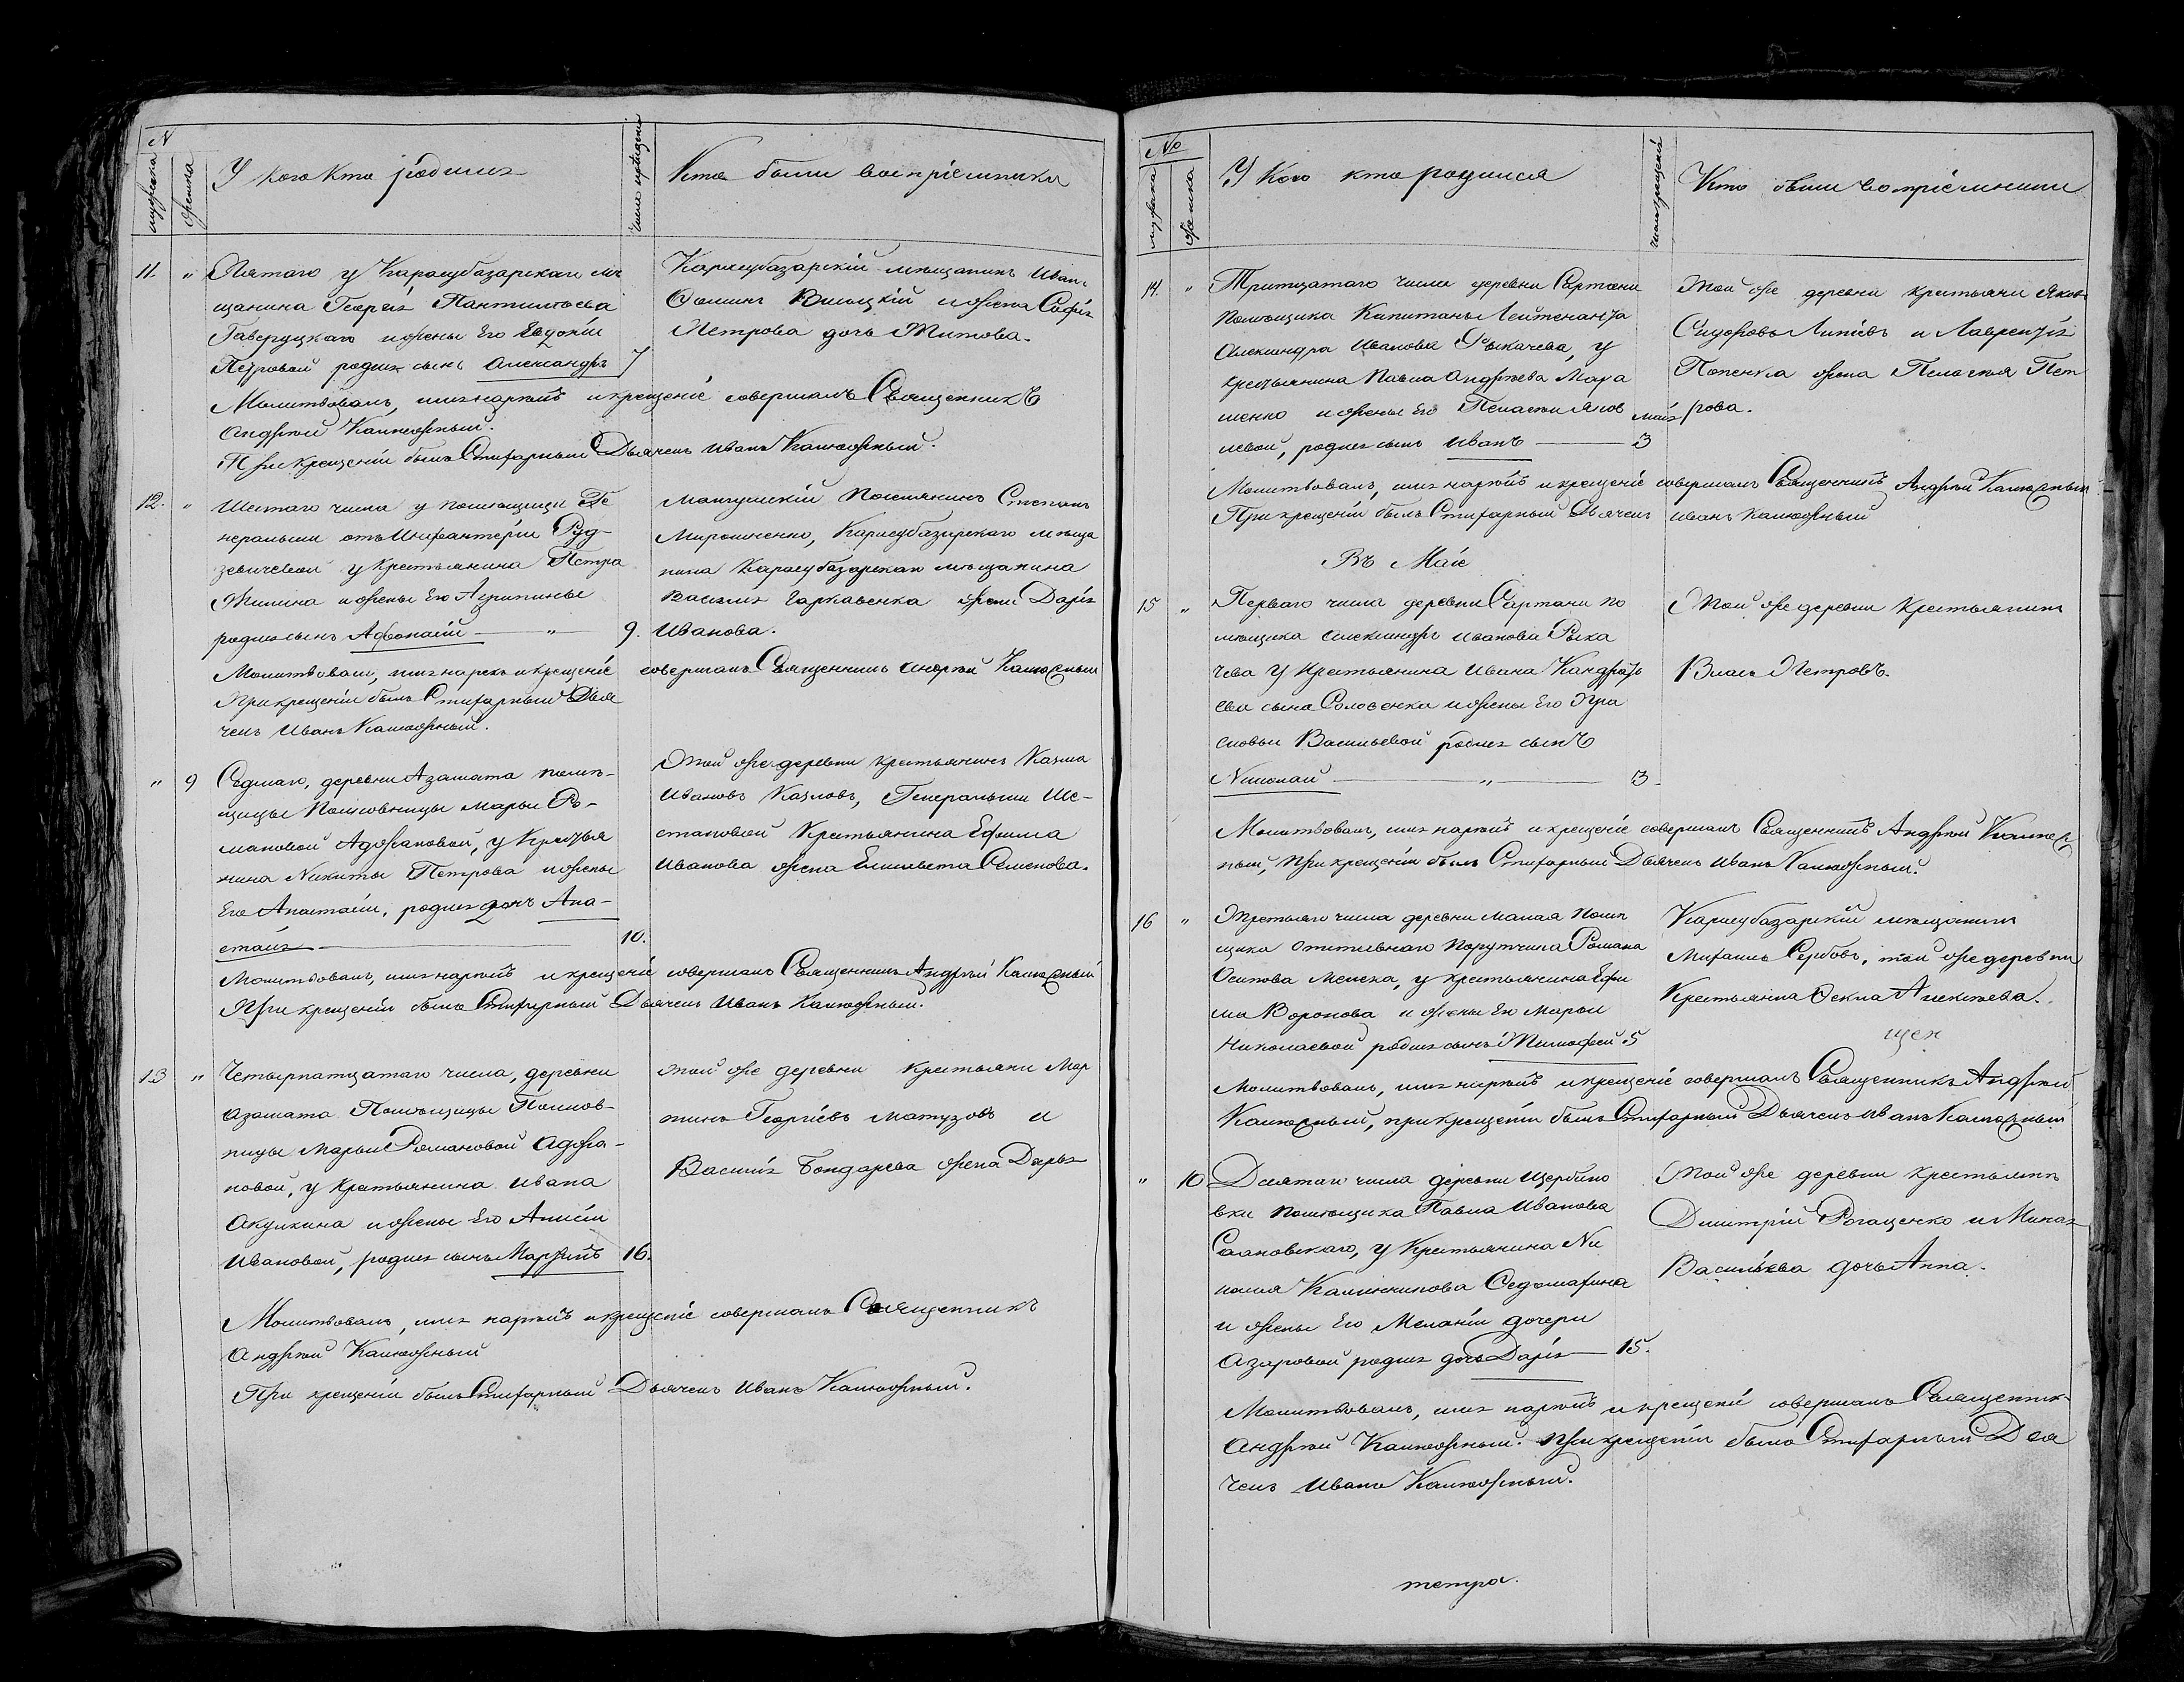 N
мужеска
женска
У кого кто родился
число крещенія
Кто были воспріемники
11. " Пятаго у Карасубазарскаго мѣ
щанина Георгія Пантилѣева
Гаверуцкаго и жены Его Евдокіи
Петровой родился сынъ Александръ 7
Карасубазарскій мѣщанинъ Иванъ
Фоминъ и жена Софія
Петрова дочь Титова.
Молитвовалъ, имя нарѣкъ и крещеніе совершалъ Священникъ
Андрѣй Калюжный.
При крещеніи былъ Стихарный Дьячекъ Иванъ Калюжный.
12. " Шестаго числа у помѣщицы Ге
неральши отъ Инфантеріи Руд-
зевичевой у крестьянина Петра
Жилина и жены Его Агрипины
родился сынъ Афонасій " 9.
Мангушскій поселянинъ Степанъ
Мирошненко, Карасубазарскаго мѣща
нина Карасубазарскаго мѣщанина
Василія Гаркавенка жена Дарія
Иванова.
Молитвовалъ, имя нарекъ и крещеніе совершалъ Священникъ Андрѣй Калюжный
При крещеніи былъ Стихарный Дья
чекъ Иванъ Калюжный.
" 9 Седмаго, деревни Азамата помѣ-
щицы Полковницы Марьи Ро-
мановой Аджановой, у Крестья
нина Никиты Петрова и жены
Его Анастасіи, родилась дочь Ана-
стасія 10.
Той же деревни крестьянинъ Казма
Ивановъ Казловъ, Генеральши Ше-
стаковой Крестьянина Ефима
Иванова жена Елисавета Семенова.
Молитвовалъ, имя нарѣкъ и крещеніе совершалъ Священникъ Андрѣй Калюжный
При крещеніи былъ Стихарный Дьячекъ Иванъ Калюжный.
13 " Четырнатцатаго числа, деревни
Азамата Помѣщицы Полков-
ницы Марьи Романовой Аджа-
новой, у Крестьянина Ивана
Акулкина и жены Его Анисіи
Ивановой, родился сынъ Мартинъ 16.
Той же деревни крестьяни Мар
тинъ Георгіевъ Матузовъ и
Василія Бондарева жена Дарья
Молитвовалъ, имя нарѣкъ и крещеніе совершалъ Священникъ
Андрѣй Калюжный
При крещеніи былъ Стихарный Дьячекъ Иванъ Калюжный.
No
мужска
женска
У Кого кто родился
число крещенія
Кто были воспріемники
14. " Тритцатаго числа деревни Сартани
Помѣщика Капитана Лейтенанта
Александра Иванова Рыкачева, у
крестьянина Павла Андрѣева Мара
шенко и жены Его Пелагеи Яков
левой, родился сынъ Иванъ маія 3
Той же деревни крестьяни Яковъ
Сидоровъ и Лаврентія
Попенка жена Пелагея Пет
рова.
Молитвовалъ, имя нарѣкъ и крещеніе совершалъ Священникъ Андрѣй Калюжный
При крещеніи былъ Стихарный Дьячекъ Иванъ Калюжный
Въ Маіе
15 " Перваго числа деревни Сартани по
мѣщика Александра Иванова Рыка
чева у Крестьянина Ивана Кандрать
ева сына Солосенка и жены Его Пра
сковьи Васильевой родился сынъ
Николай " 3.
Той же деревни Крестьянинъ
Власъ Петровъ.
Молитвовалъ, имя нарѣкъ и крещеніе совершалъ Священникъ Андрѣй Калюж
ный, При крещеніи былъ Стихарный Дьячекъ Иванъ Калюжный.
16 " Третьяго числа деревни Малая помѣ
щика Отставнаго Порутчика Романа
Осипова у крестьянина Ефи
ма Воронова и жены Его Марьи
Николаевой родился сынъ Тимофей 5
Карасубазарскій мѣщанинъ
Михаилъ Сербовъ, той же деревни
Крестьянка Фекла Алексѣева.
Молитвовалъ, имя нарѣкъ и крещеніе совершалъ Священникъ Андрѣй
Калюжный, при крещеніи былъ Стихарный Дьячекъ Иванъ Калюжный
" 10 Десятаго числа деревни Щербино
вки помѣщика Павла Иванова
у Крестьянина Ни
колая Калиникова
и жены Его Меланіи дочери
Азаровой родилась дочь Дарія 15.
Той же деревни крестьянинъ
Димитрій Рогащенко и
Васильева дочь Анна.
Молитвовалъ, имя нарѣкъ и крещеніе совершалъ Священник
Андрѣй Калюжный. При крещеніи былъ Стихарный Дья
чекъ Иванъ Калюжный.